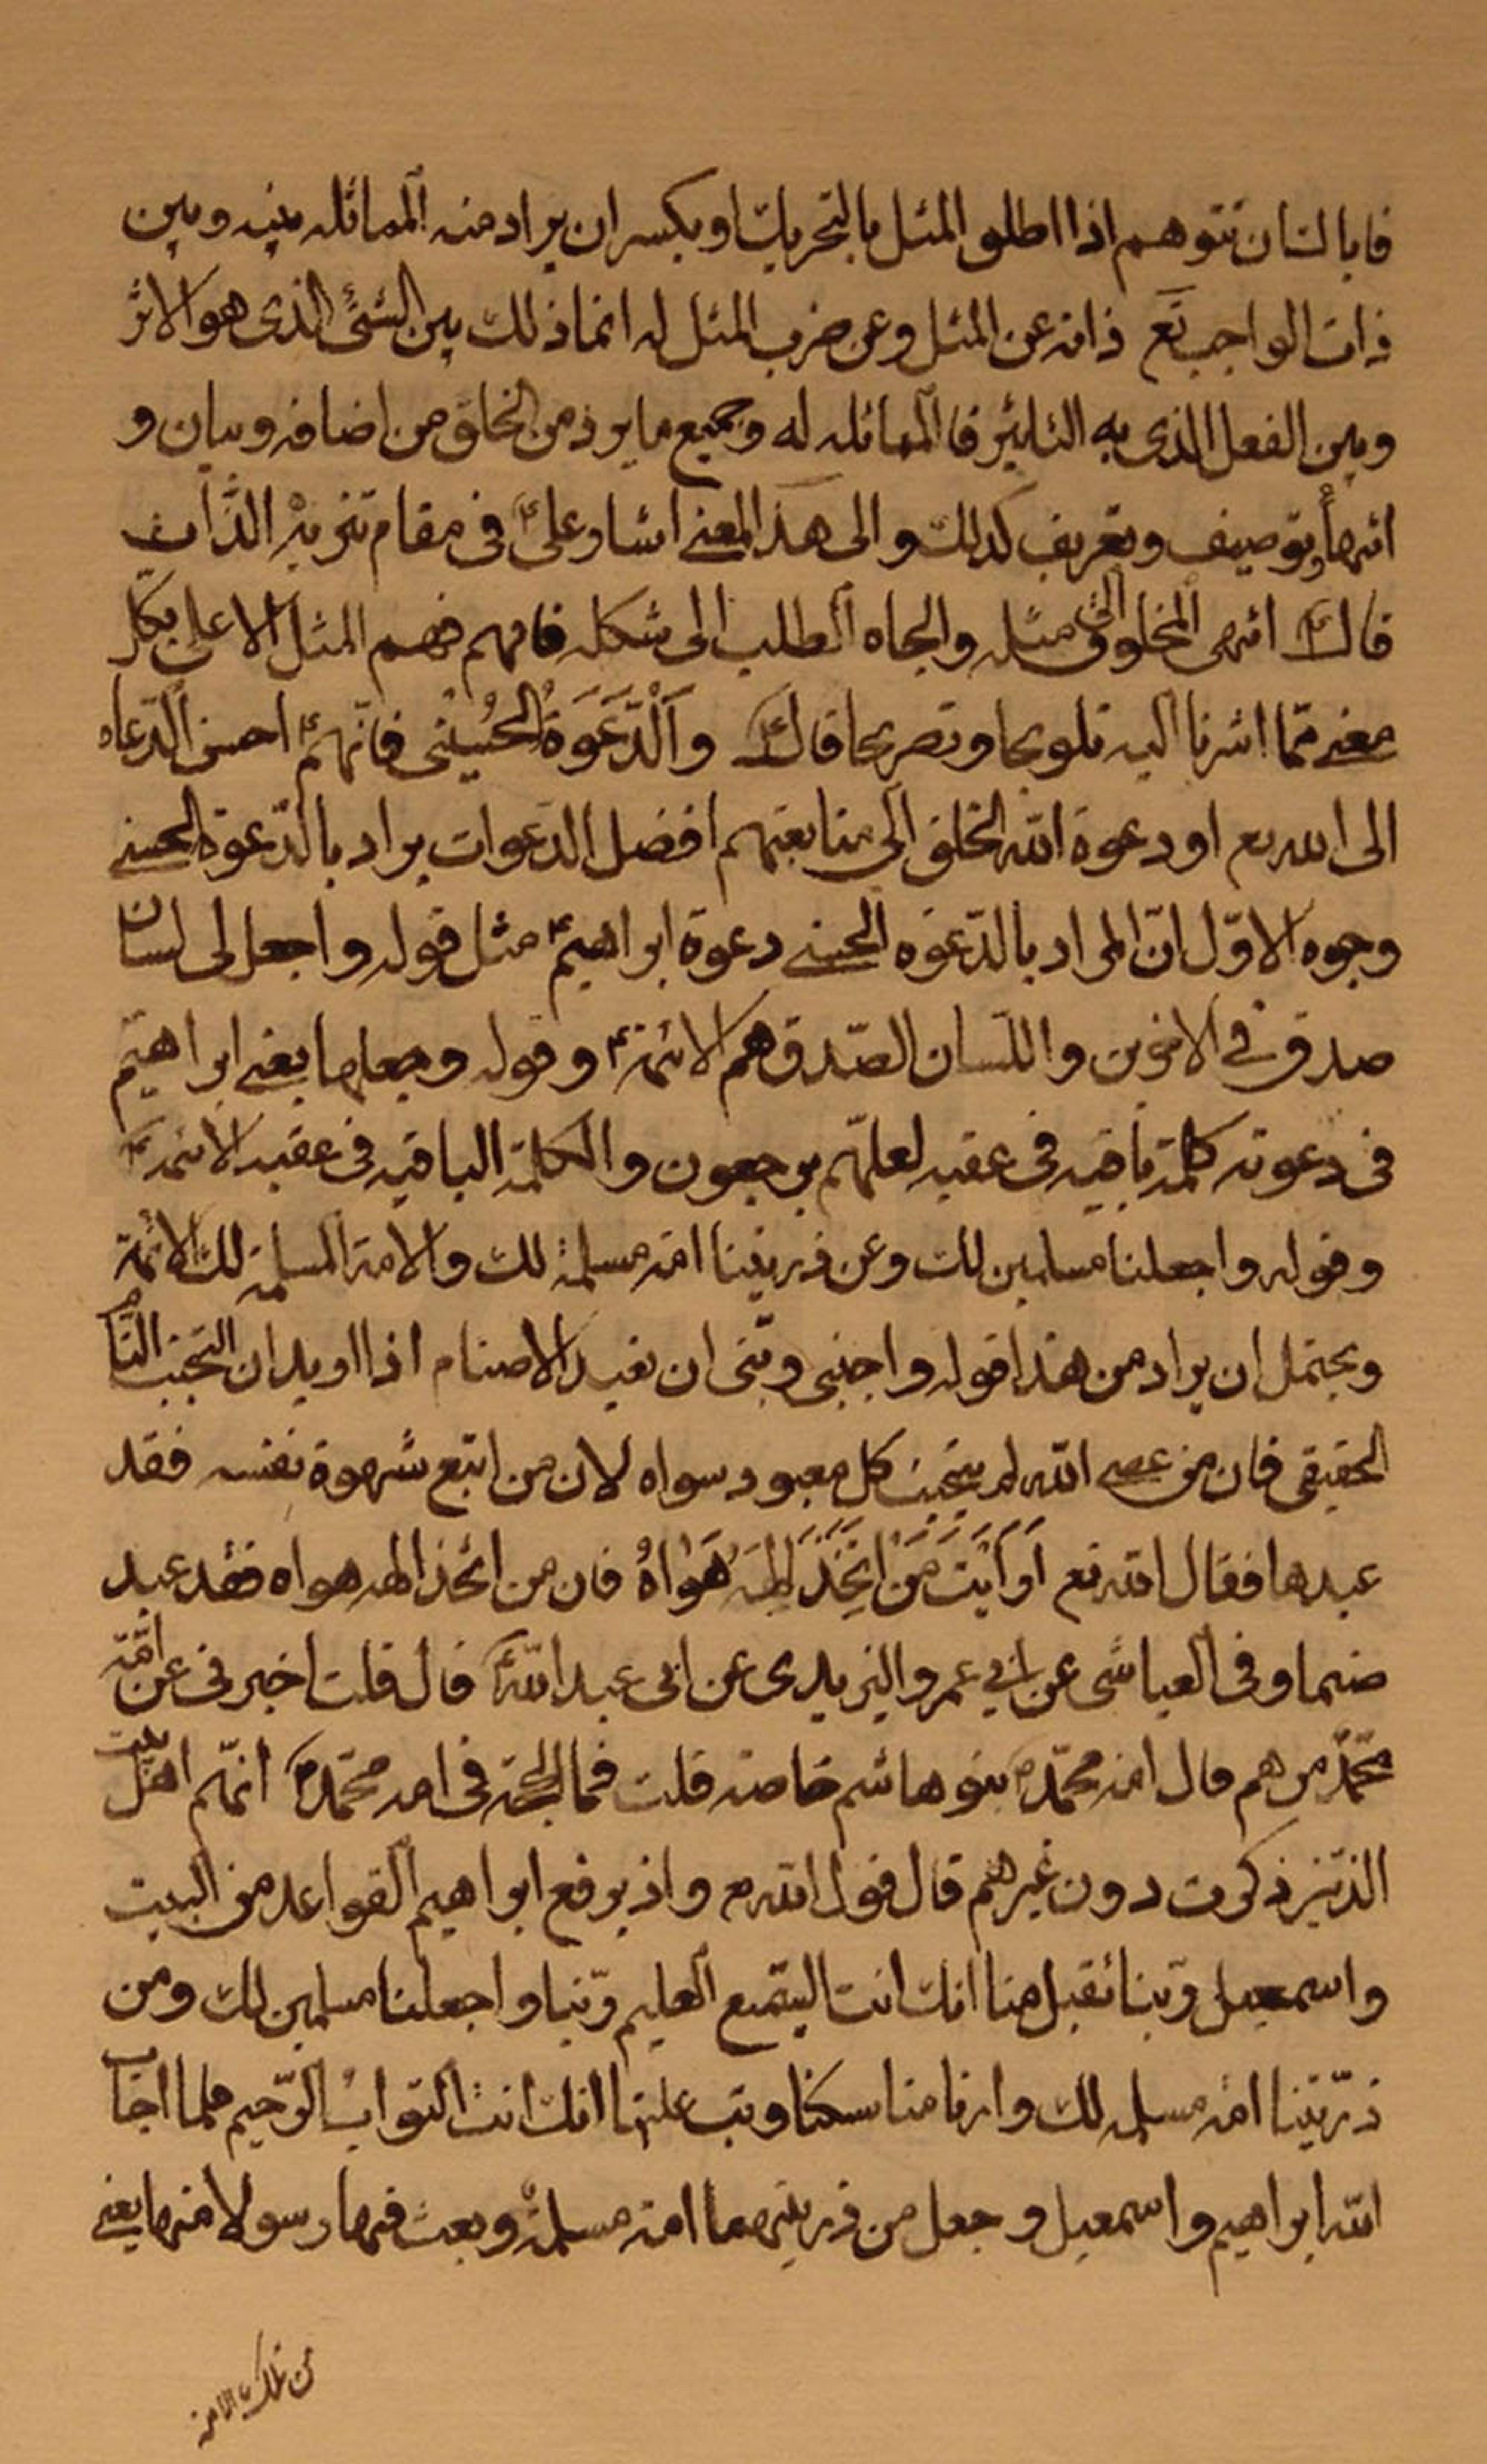 فاياك ان تتوهم اذا اطلق المثل بالتحريك او بكسر ان يراد منه المماثله بينه وبين
ذات الواجب تع ذاته عن المثل وعن ضرب المثل له انما ذلك بين الشئ الذى هو الاثر
وبين الفعل الذى به التاثير فالمماثله له وجميع ما يرد من الخلق من اضافه وبيان و
انتهاء وتوصيف وتعريف كذلك والى هذا المعنى اشار على ع فى مقام تنزيه الذات
قال ع انتهى المخلوق الى مثله والجاه الطلب الى شكله فافهم فهم المثل الاعلى بكل
معنى مما اشرنا اليه تلويحا وتصريحا قال ع وَاَلْدَّعَوَةُ الحُسْنى فانهم ع احسن الدعاه
الى الله تع او دعوة الله الخلق الى متابعتهم افضل الدعوات يراد بالدّعوة الحسنى
وجوه الاوّل انّ المراد بالدّعوه الحسنى دعوة ابراهيم ع مثل قوله واجعل لى لسان
صدق فى الاخرين واللسان الصّدق هم الائمة ع وقوله وجعلها يعنى ابراهيم
فى دعوته كلمة باقيه فى عقبه لعلهّم يرجعون والكلمة الباقيه فى عقبه الائمه ع
وقوله واجعلنا مسلمين لك وعن ذريتنا امة مسلمة لك والامة المسلمة لك الائمة
ويحتمل ان يراد من هذا قوله واجنبى وبنى ان نعبد الاصنام اذا اريد ان التجنب التام
الحقيقى فان من عصى الله لم يتجنب كل معبود سواه لان من اتبع شهوة نفسه فقد
عبدها فقال الله تع اَرَاَيْتَ مَنْ اتَّخَذَ اِلهَهُ هَوٰاهُ فان من اتخذ الهه هواه فقد عبد
صنما وفى العياشى عن ابي عمرو الزبيدى عن ابى عبد الله ع قال قلت اخبرنى عن امّة
محمّد من هم قال امة محمّد ص بنو هاشم خاصة قلت فما الحجة فى امه محمّد ص انهّم اهل بيت
الذين ذكرت دون غيرهم قال قول الله تع واذ يرفع ابراهيم القواعد من البيت
واسمعيل ربّنا تقبل منا انك انت السّميع العليم ربّنا واجعلنا مسلمين لك ومن
ذرّيتنا امة مسلمه لك وارنا مناسكنا وتب علينا انك انت التواب الرّحيم فلما اجاب
الله ابراهيم واسمعيل وجعل من ذريتهما امة مسلمة وبعث فيها رسولا منها يعنى
من تلك الامة